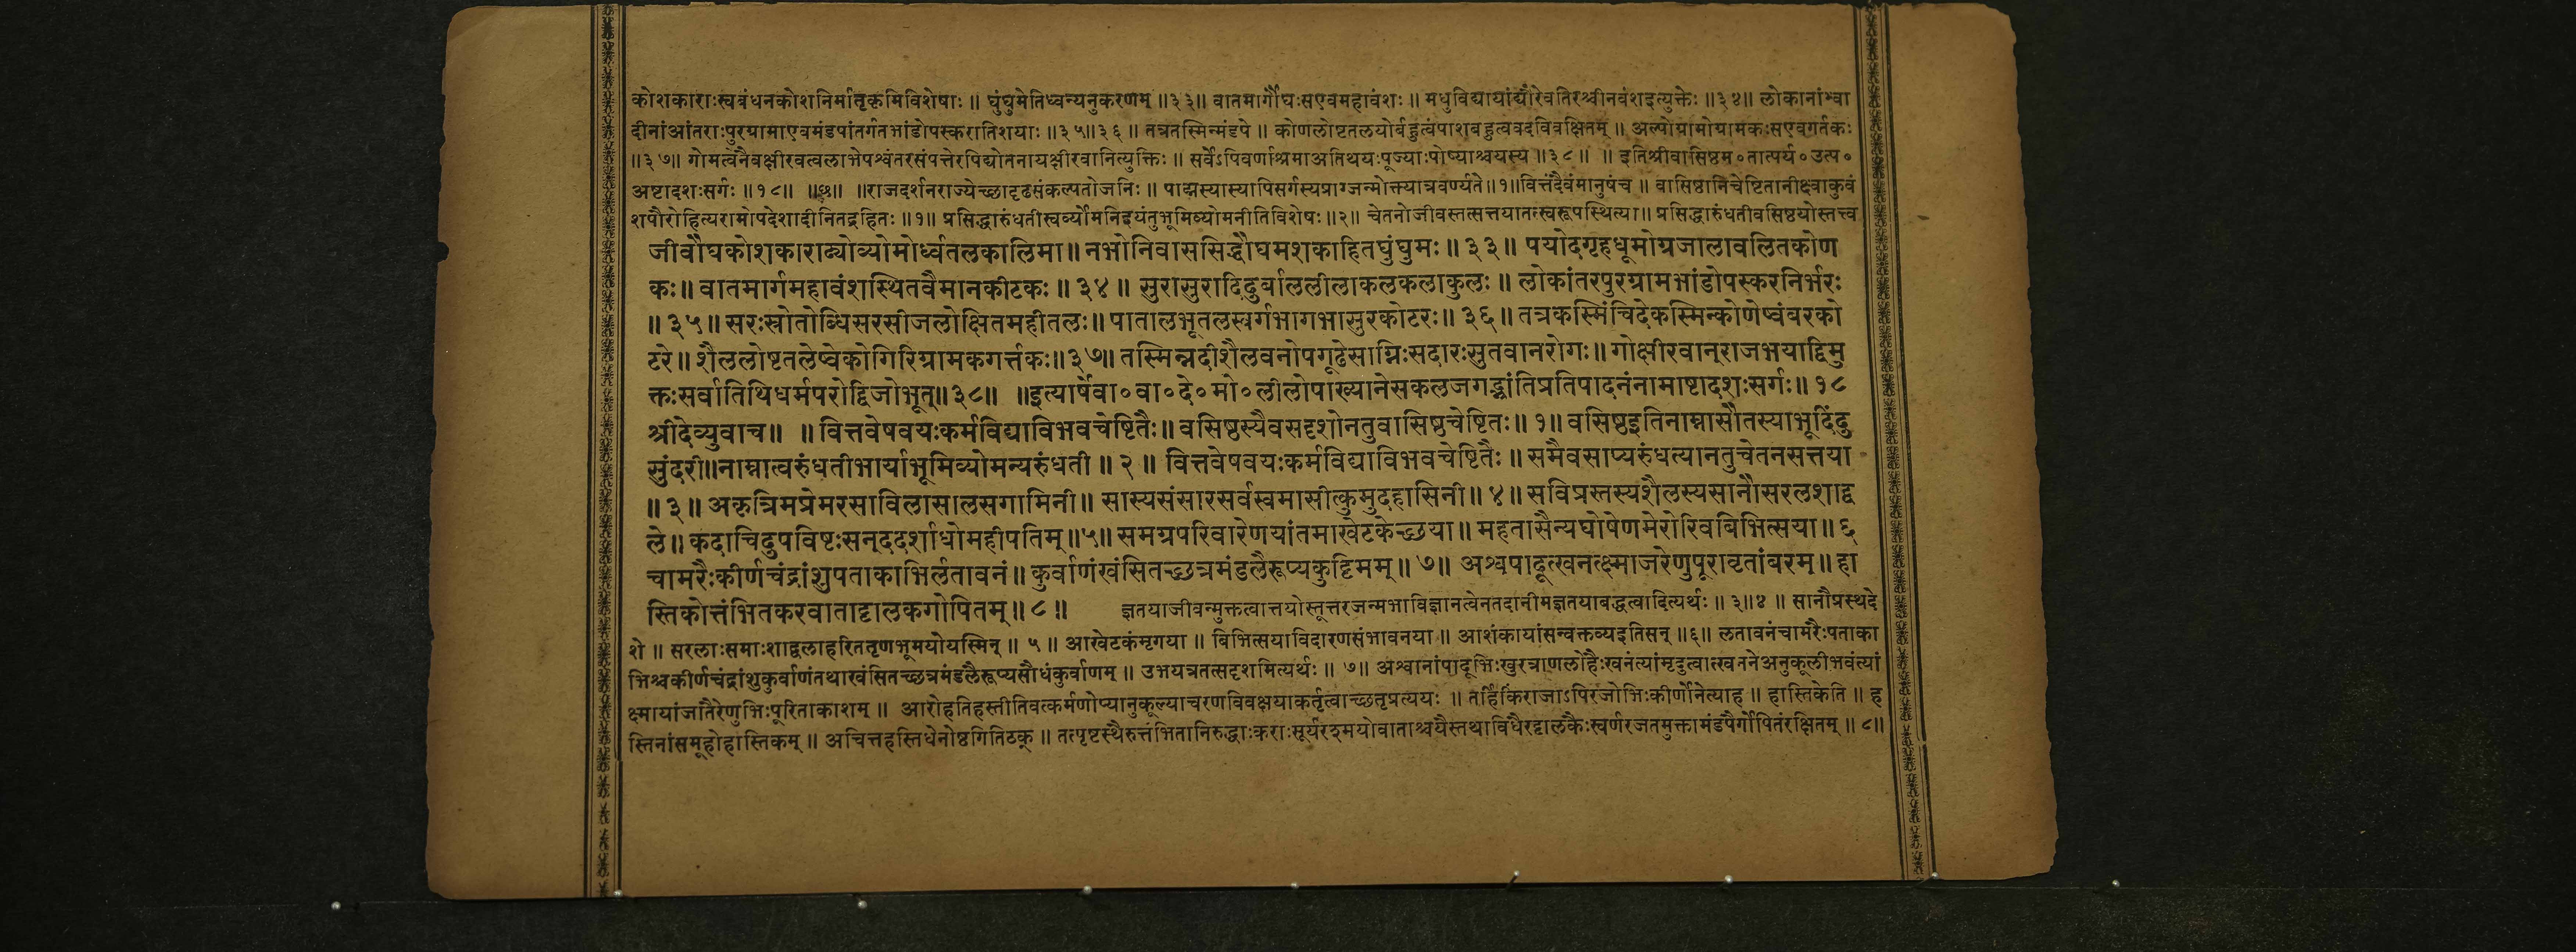 कोशकाराःस्वबंधनकोशनिर्मातृकृमिविशेषाः ॥ घुंघुमेतिध्वन्यनुकरणम् ॥३३॥ वातमार्गौघःसएवमहावंशः ॥ मधुविद्यायांद्यौरेवतिरश्चीनवंशइत्युक्तेः ॥३४॥ लोकानांश्वा
दीनांआंतराःपुरग्रामाएवमंडपांतर्गतभांडोपस्करातिशयाः ॥३५॥३६॥ तत्रतस्मिन्मंडपे ॥ कोणलोष्टतलयोर्बहुत्वंपाशबहुत्ववदविवक्षितम् ॥ अल्पोग्रामोग्रामकःसएवगर्तकः
॥३७॥ गोमत्वेनैवक्षीरवत्वलाभेपश्वंतरसंपत्तेरपिद्योतनायक्षीरवानित्युक्तिः ॥ सर्वेऽपिवर्णाश्रमाअतिथयःपूज्याःपोष्याश्चयस्य ॥३८॥ ॥ इतिश्रीवासिष्ठम॰तात्पर्य॰उत्प॰
अष्टादशःसर्गः ॥१८॥ ॥ॐ॥ ॥राजदर्शनराज्येच्छादृढसंकल्पतोजनिः ॥ पाद्मस्यास्यापिसर्गस्यप्राग्जन्मोक्त्यात्रवर्ण्यते॥१॥वित्तंदैवंमानुषंच ॥ वासिष्ठानिचेष्टितानीक्ष्वाकुवं
शपौरोहित्यरामोपदेशादीनितद्रहितः ॥१॥ प्रसिद्धारुंधतीस्वर्व्योमनिइयंतुभूमिव्योमनीतिविशेषः ॥२॥ चेतनोजीवस्तत्सत्तयातत्स्वरूपस्थित्या॥ प्रसिद्धारुंधतीवसिष्ठयोस्तत्त्व
जीवौघकोशकाराढ्योव्योमोर्ध्वतलकालिमा ॥ नभोनिवाससिद्धौघमशकाहितघुंघुमः ॥ ३३ ॥ पयोदगृहधूमोग्रजालावलितकोण
कः ॥ वातमार्गमहावंशस्थितवैमानकीटकः ॥ ३४ ॥ सुरासुरादिदुर्बाललीलाकलकलाकुलः ॥ लोकांतरपुरग्रामभांडोपस्करनिर्भरः
॥ ३५ ॥ सरःस्रोतोब्धिसरसीजलोक्षितमहीतलः ॥ पातालभूतलस्वर्गभागभासुरकोटरः ॥ ३६ ॥ तत्रकस्मिंचिदेकस्मिन्कोणेष्वंबरको
टरे ॥ शैललोष्टतलेष्वेकोगिरिग्रामकगर्त्तकः ॥३७॥ तस्मिन्नदीशैलवनोपगूढेसाग्निःसदारःसुतवानरोगः ॥ गोक्षीरवान्राजभयाद्विमु
क्तःसर्वातिथिधर्मपरोद्विजोभूत् ॥३८॥ ॥इत्यार्षेवा॰वा॰दे॰मो॰लीलोपाख्यानेसकलजगद्भ्रांतिप्रतिपादनंनामाष्टादशःसर्गः ॥ १८
श्रीदेव्युवाच ॥ ॥ वित्तवेषवयःकर्मविद्याविभवचेष्टितैः ॥ वसिष्ठस्यैवसदृशोनतुवासिष्ठचेष्टितः ॥ १ ॥ वसिष्ठइतिनाम्नासौतस्याभूदिंदु
सुंदरी॥नाम्नात्वरुंधतीभार्याभूमिव्योमन्यरुंधती ॥ २ ॥ वित्तवेषवयःकर्मविद्याविभवचेष्टितैः ॥ समैवसाप्यरुंधत्यानतुचेतनसत्तया
॥ ३ ॥ अकृत्रिमप्रेमरसाविलासालसगामिनी ॥ सास्यसंसारसर्वस्वमासीत्कुमुदहासिनी ॥ ४ ॥ सविप्रस्तस्यशैलस्यसानौसरलशाद्व
ले ॥ कदाचिदुपविष्टःसन्ददर्शाधोमहीपतिम् ॥५॥ समग्रपरिवारेणयांतमाखेटकेच्छया ॥ महतासैन्यघोषेणमेरोरिवबिभित्सया ॥ ६
चामरैःकीर्णचंद्रांशुपताकाभिर्लतावनं ॥ कुर्वाणंखंसितच्छत्रमंडलैरूप्यकुट्टिमम् ॥ ७ ॥ अश्वपादूत्खनत्क्ष्माजरेणुपूरावृतांबरम् ॥ हा
स्तिकोत्तंभितकरवाताट्टालकगोपितम् ॥ ८ ॥ ज्ञतयाजीवन्मुक्तत्वात्तयोस्तूत्तरजन्मभाविज्ञानत्वेनतदानीमज्ञतयाबद्धत्वादित्यर्थः ॥ ३॥४ ॥ सानौप्रस्थदे
शे ॥ सरलाःसमाःशाद्वलाहरिततृणभूमयोयस्मिन् ॥ ५ ॥ आखेटकंमृगया ॥ बिभित्सयाविदारणसंभावनया ॥ आशंकायांसन्वक्तव्यइतिसन् ॥६॥ लतावनंचामरैःपताका
भिश्चकीर्णचंद्रांशुकुर्वाणंतथाखंसितच्छत्रमंडलैरूप्यसौधंकुर्वाणम् ॥ उभयत्रतत्सदृशमित्यर्थः ॥ ७॥ अश्वानांपादूभिःखुरत्राणलोहैःखनंत्यांमृदुत्वात्खननेअनुकूलीभवंत्यां
क्ष्मायांजातैरेणुभिःपूरिताकाशम् ॥ आरोहतिहस्तीतिवत्कर्मणोप्यानुकूल्याचरणविवक्षयाकर्तृत्वाच्छतृप्रत्ययः ॥ तर्हिकिंराजाऽपिरजोभिःकीर्णोनेत्याह ॥ हास्तिकेति ॥ ह
स्तिनांसमूहोहास्तिकम् ॥ अचित्तहस्तिधेनोष्ठगितिठक् ॥ तत्पृष्टस्थैरुत्तंभितानिरुद्धाःकराःसूर्यरश्मयोवाताश्चयैस्तथाविधैरट्टालकैःस्वर्णरजतमुक्तामंडपैर्गोपितंरक्षितम् ॥ ८॥